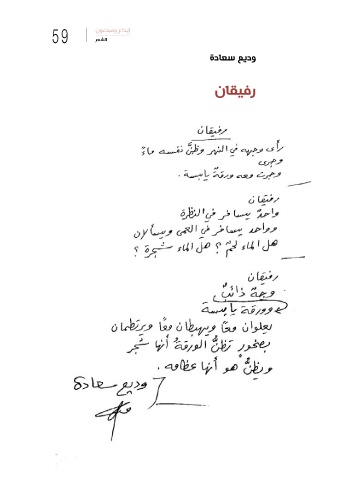 59
إبداع ومبدعون
الشعر
وديع سعادة
رفيقان
رفيقان
رأى وجهه في النهر وظنَّ نفسه ماءً
وجرى
وجرت معه ورقةٌ يابسة .
رفيقان
واحدٌ يسافر في النظرة
وواحد يسافر في العمى ويسألان
هل الماء لحمٌ ؟ هل الماء شجرة ؟
رفيقان
وجهٌ ذائبٌ
وورقة يابسة
يعلوان معًا ويهبطان معًا ويرتطمان
بصخور تظنُّ الورقةُ أنها شجر
ويظنُّ هو أنها عظامه .
وديع سعادة